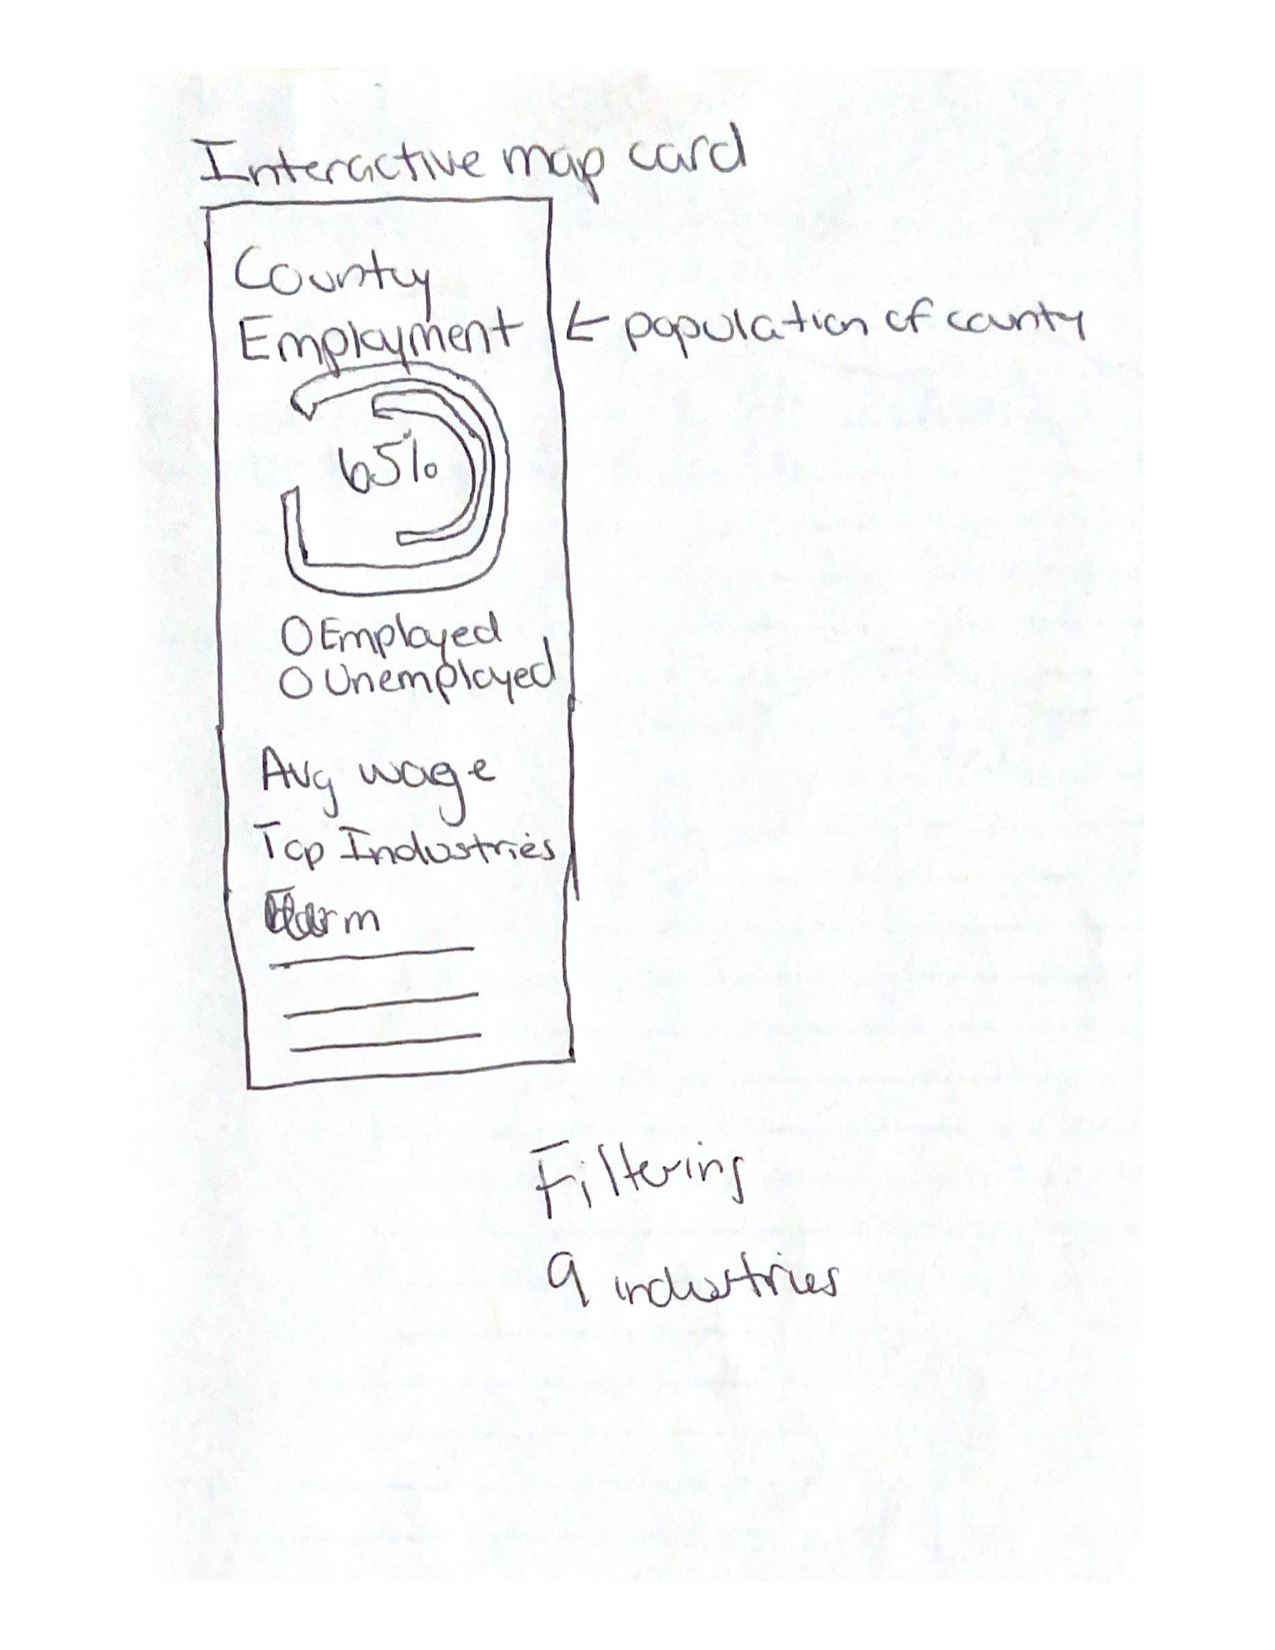 Interactive map card
County
Employment ← population of county
65%
O Employed
O Unemployed
Avg wage
Top Industries
Farm
Filtering
9 industries